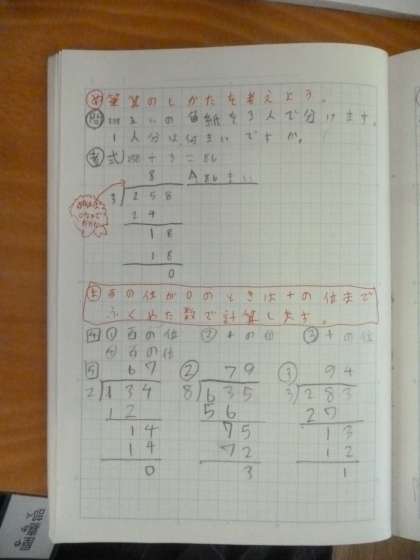 め 筆算のしかたを考えよう。
問 258まいの色紙を3人で分けます。
1人分は何まいですか。
考 式 258÷3=86
8 A 86まい
3)258
24
18
18
0
ま 百の位が0のときは十の位まで
ふくめた数で計算します。
4 ① 百の位 ② 十の位 ③ 十の位
④ 百の位
5 67 ② 79 ③ 94
2)134 8)635 3)283
12 56 27
14 75 13
14 72 12
0 3 1